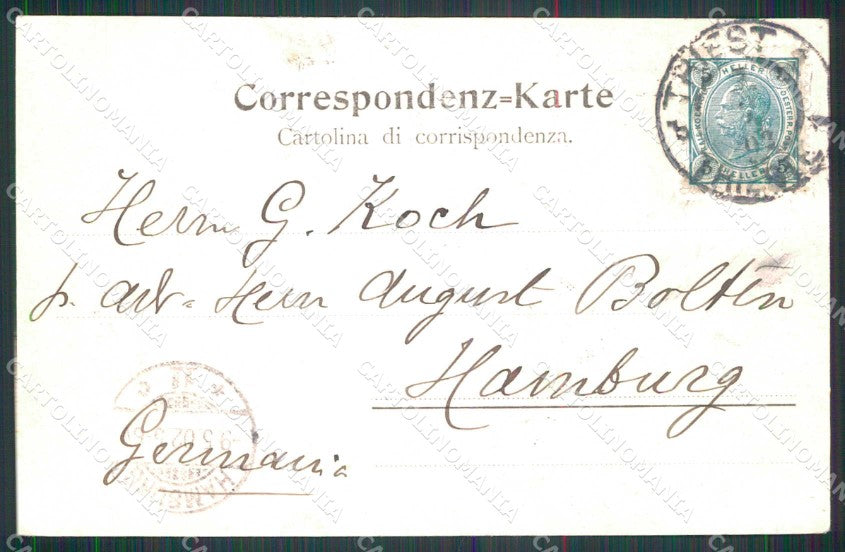 Correspondenz=Karte
Cartolina di corrispondenza.
TRIEST
HELLER
5 HELLER 5
Herrn G. Koch
p. adr. Herrn August Bolten
Hamburg
Germania
9.5.02
HAMBURG
CARTOLINOMANIA